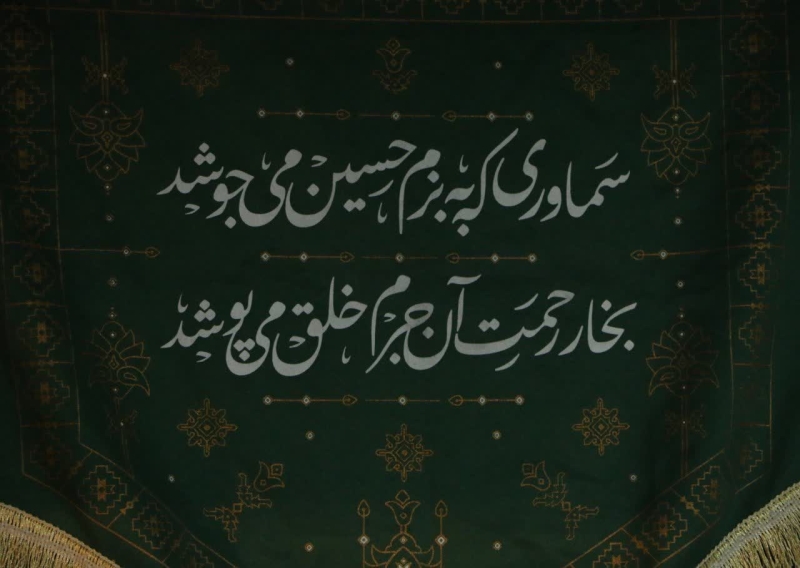 سماوری که به بزم حسین می جوشد
بخار رحمت آن جرم خلق می پوشد